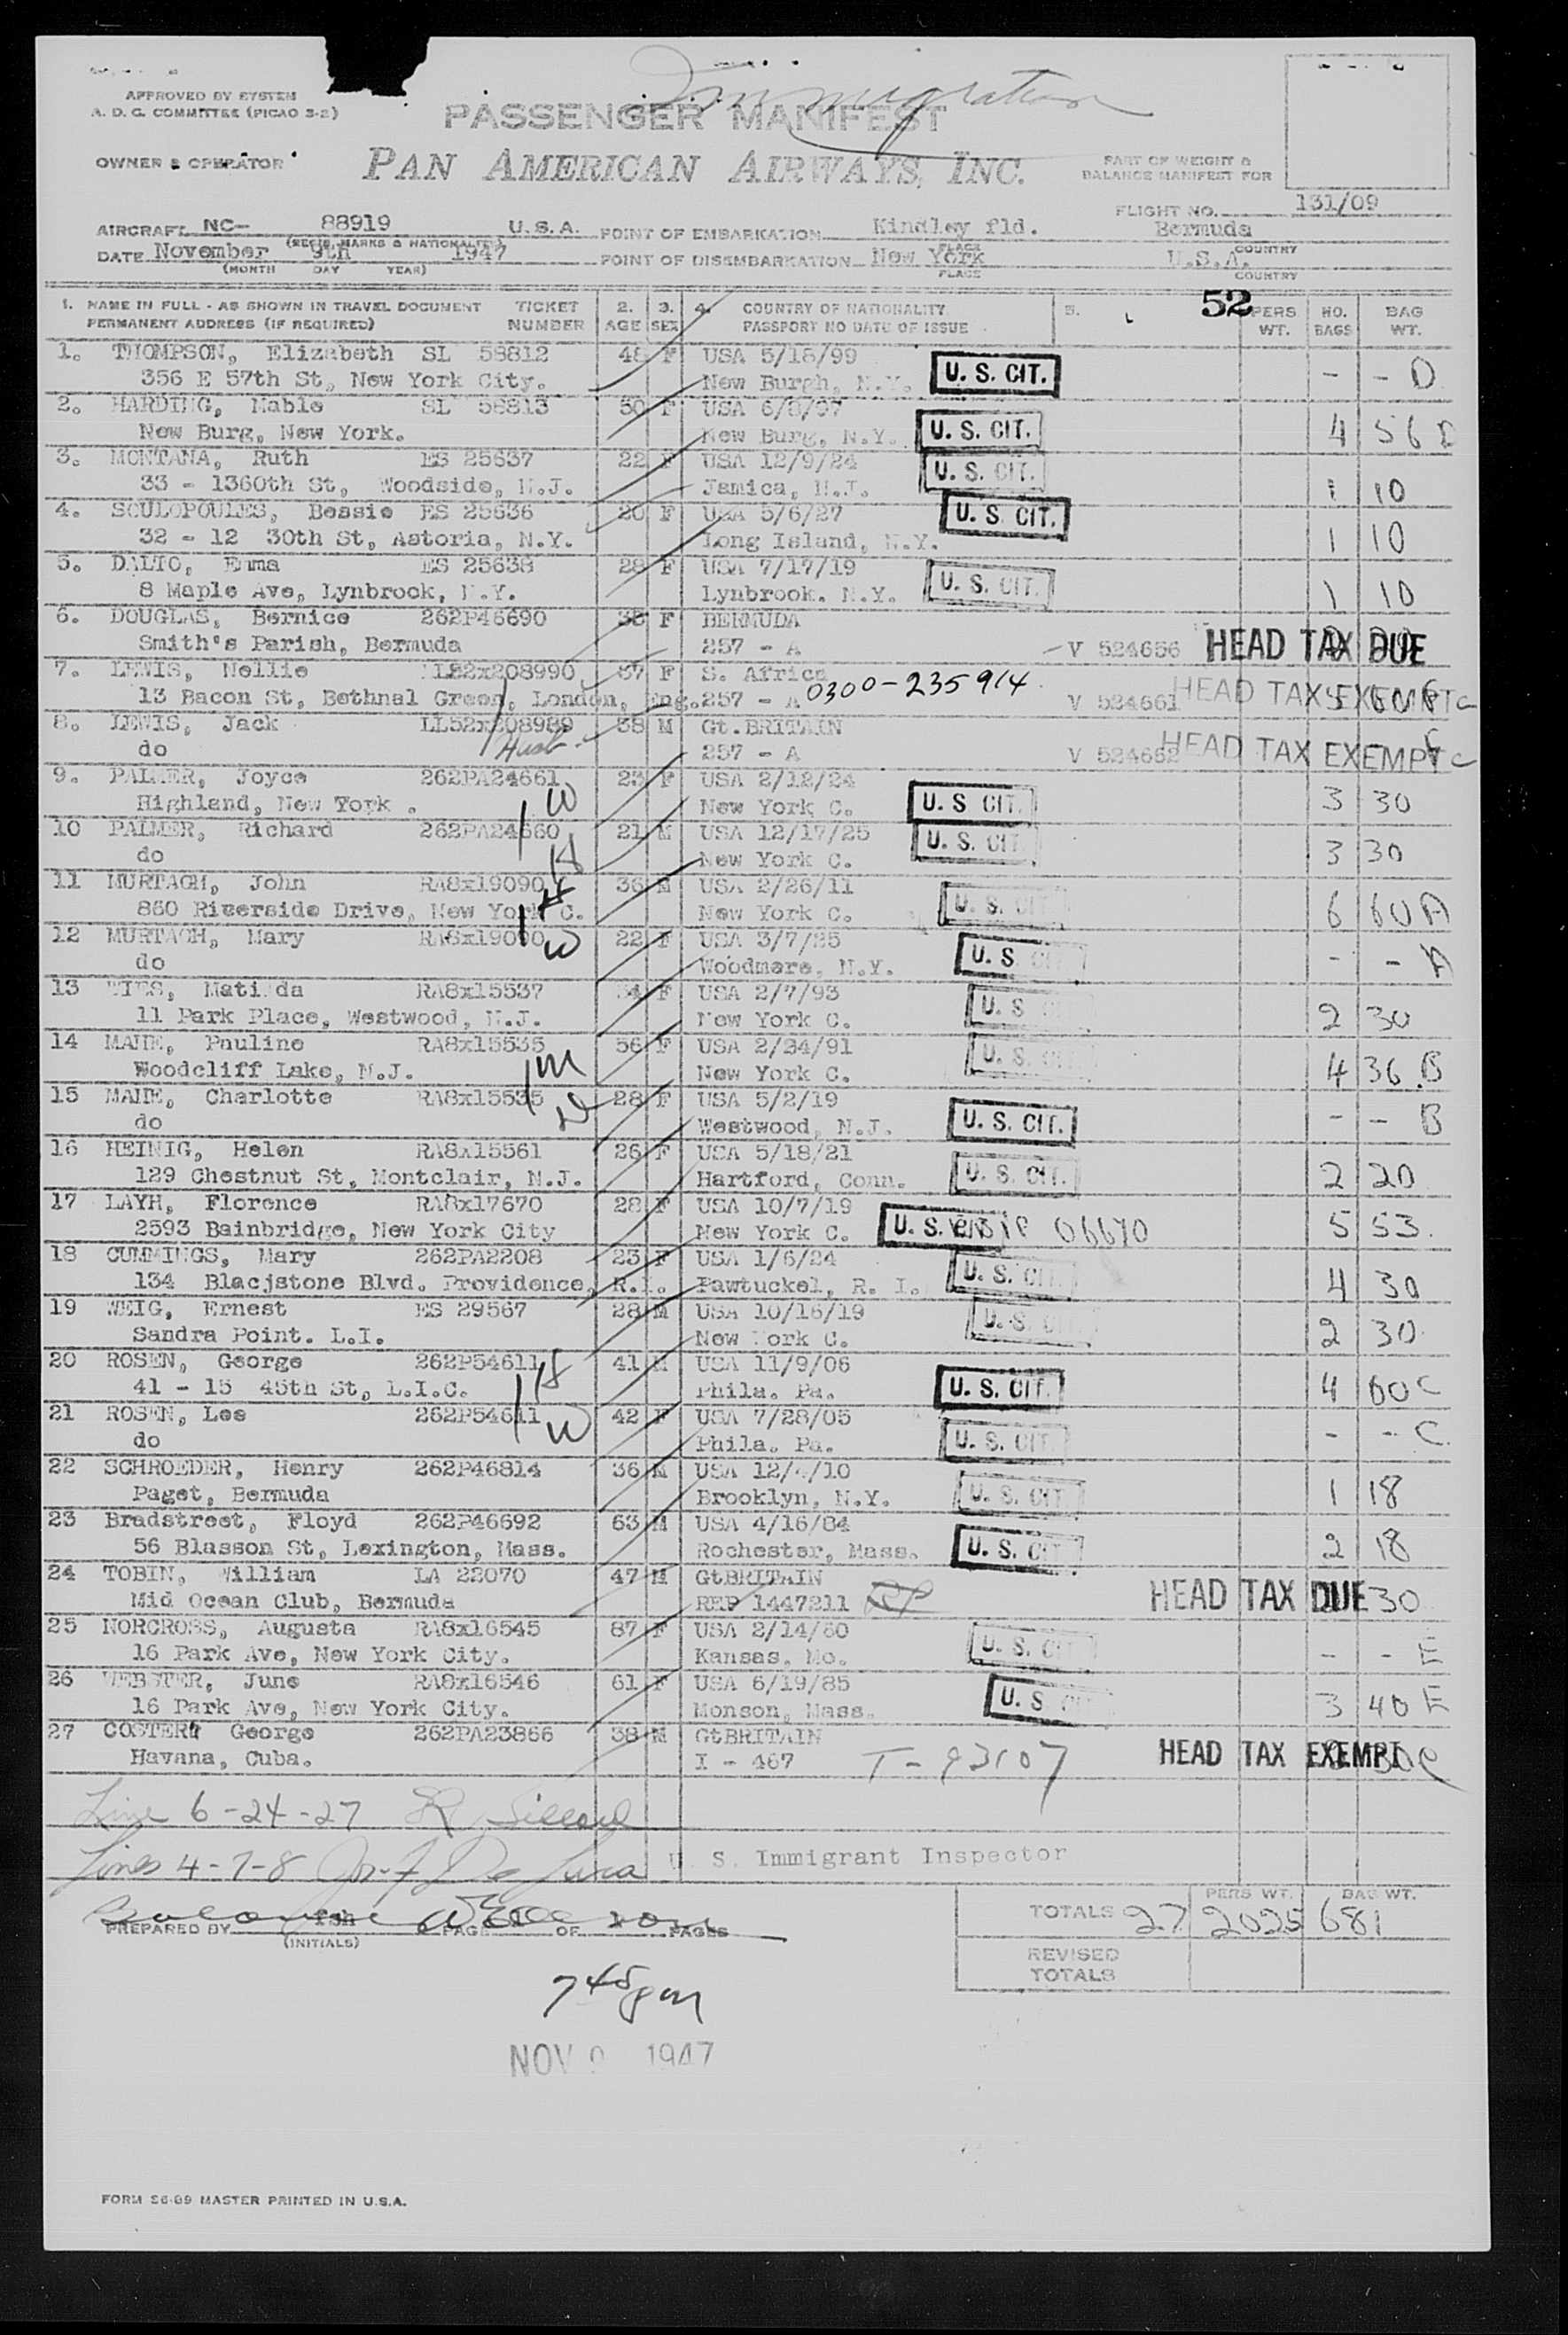 Immigration
APPROVED BY SYSTEM
A. D. G. COMMITTEE (PICAO 3-2)
PASSENGER MANIFEST
OWNER & OPERATOR
PAN AMERICAN AIRWAYS, INC.
PART OF WEIGHT &
BALANCE MANIFEST FOR
FLIGHT NO. 131/09
AIRCRAFT NC- 88919 U.S.A. POINT OF EMBARKATION Kindley fld. Bermuda
(REGIS. MARKS & NATIONALITY) PLACE COUNTRY
DATE November 9th 1947 POINT OF DISEMBARKATION New York U.S.A.
(MONTH DAY YEAR) PLACE COUNTRY
1. NAME IN FULL - AS SHOWN IN TRAVEL DOCUMENT TICKET 2. 3. 4. COUNTRY OF NATIONALITY 5. 52 PERS NO. BAG
PERMANENT ADDRESS (IF REQUIRED) NUMBER AGE SEX PASSPORT NO DATE OF ISSUE WT. BAGS WT.
1. THOMPSON, Elizabeth SL 58812 48 F USA 5/18/99
356 E 57th St, New York City. New Burgh, N.Y. U. S. CIT. - - D
2. HARDING, Mable SL 58813 50 F USA 6/8/97
New Burg, New York. New Burg, N.Y. U. S. CIT. 4 56 D
3. MONTANA, Ruth ES 25637 22 F USA 12/9/24
33 - 1360th St, Woodside, N.J. Jamica, N.J. U. S. CIT. 1 10
4. SCULOPOULES, Bessie ES 25636 20 F USA 5/6/27
32 - 12 30th St, Astoria, N.Y. Long Island, N.Y. U. S. CIT. 1 10
5. DALTO, Emma ES 25638 28 F USA 7/17/19
8 Maple Ave, Lynbrook, N.Y. Lynbrook. N.Y. U. S. CIT. 1 10
6. DOUGLAS, Bernice 262P46690 35 F BERMUDA
Smith's Parish, Bermuda 257 - A V 524656 HEAD TAX DUE
7. LEWIS, Nellie LL52x208990 37 F S. Africa
13 Bacon St, Bethnal Green, London, Eng. 257 - A 0300-235914 V 524661 HEAD TAX EXEMPT
8. LEWIS, Jack LL52x208989 38 M Gt.BRITAIN
do Husb. 257 - A V 524662 HEAD TAX EXEMPT
9. PALMER, Joyce 262PA24661 23 F USA 2/12/24
Highland, New York . W New York C. U. S CIT. 3 30
10 PALMER, Richard 262PA24660 21 M USA 12/17/25
do H New York C. U. S. CIT. 3 30
11 MURTAGH, John RA8x19090 36 M USA 2/26/11
860 Riverside Drive, New York C. H New York C. U. S. CIT 6 60 A
12 MURTAGH, Mary RA8x19090 22 F USA 3/7/25
do W Woodmere, N.Y. U. S. CIT - - A
13 Matilda RA8x15537 54 F USA 2/7/93
11 Park Place, Westwood, N.J. New York C. U. S 2 30
14 MAHE, Pauline RA8x15535 56 F USA 2/24/91
Woodcliff Lake, N.J. M New York C. U. S. CIT 4 36 B
15 MAHE, Charlotte RA8x15535 28 F USA 5/2/19
do D Westwood, N.J. U. S. CIT. - - B
16 HEINIG, Helen RA8x15561 26 F USA 5/18/21
129 Chestnut St, Montclair, N.J. Hartford, Conn. U. S. CIT. 2 20
17 LAYH, Florence RA8x17670 28 F USA 10/7/19
2593 Bainbridge, New York City New York C. U. S. 06670 5 53
18 CUMMINGS, Mary 262PA2208 23 F USA 1/6/24
134 Blacjstone Blvd. Providence, R.I. Pawtuckel, R. I. U. S. CIT 4 30
19 WEIG, Ernest ES 29567 28 M USA 10/16/19
Sandra Point. L.I. New York C. U. S. CIT 2 30
20 ROSEN, George 262P54611 41 M USA 11/9/06
41 - 15 45th St, L.I.C. H Phila. Pa. U. S. CIT. 4 60 C
21 ROSEN, Lee 262P54611 42 F USA 7/28/05
do W Phila. Pa. U. S. CIT. - - C
22 SCHROEDER, Henry 262P46814 36 M USA
Paget, Bermuda Brooklyn, N.Y. U. S. CIT 1 18
23 Bradstreet, Floyd 262P46692 63 M USA 4/16/84
56 Blasson St, Lexington, Mass. Rochester, Mass. U. S. CIT 2 18
24 TOBIN, William LA 22070 47 M GtBRITAIN
Mid Ocean Club, Bermuda REP 1447211 RP HEAD TAX DUE 30
25 NORCROSS, Augusta RA8x16545 87 F USA 2/14/60
16 Park Ave, New York City. Kansas, Mo. U. S. CIT - - E
26 WEBSTER, June RA8x16546 61 F USA 6/19/85
16 Park Ave, New York City. Monson, Mass. U. S 3 40 E
27 COSTER, George 262PA23866 38 M GtBRITAIN
Havana, Cuba. I - 467 T-93107 HEAD TAX EXEMPT
Line 6-24-27
Lines 4-7-8 U. S. Immigrant Inspector
PERS WT. BAG WT.
PREPARED BY fsh PAGE OF PAGES TOTALS 27 2025 681
(INITIALS)
REVISED
TOTALS
7 45 pm
NOV 9 1947
FORM 26-09 MASTER PRINTED IN U.S.A.